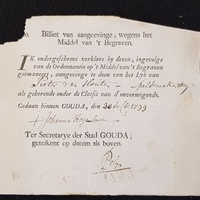 o. Billiet van aangeevinge, wegens het
Middel van 't Begraven.
IK ondergeschreve verklare by deezen, ingevolge
van de Ordonnantie op 't Middel van 't Begraven
geëmaneert, aangevinge te doen van het Lyk van
Pieter van Houten
als gehorende onder de Classis van d'onvermogende.
Gedaan binnen GOUDA, den 30 1799
Johannes
Ter Secretarye der Stad GOUDA;
getekent op datum als boven.